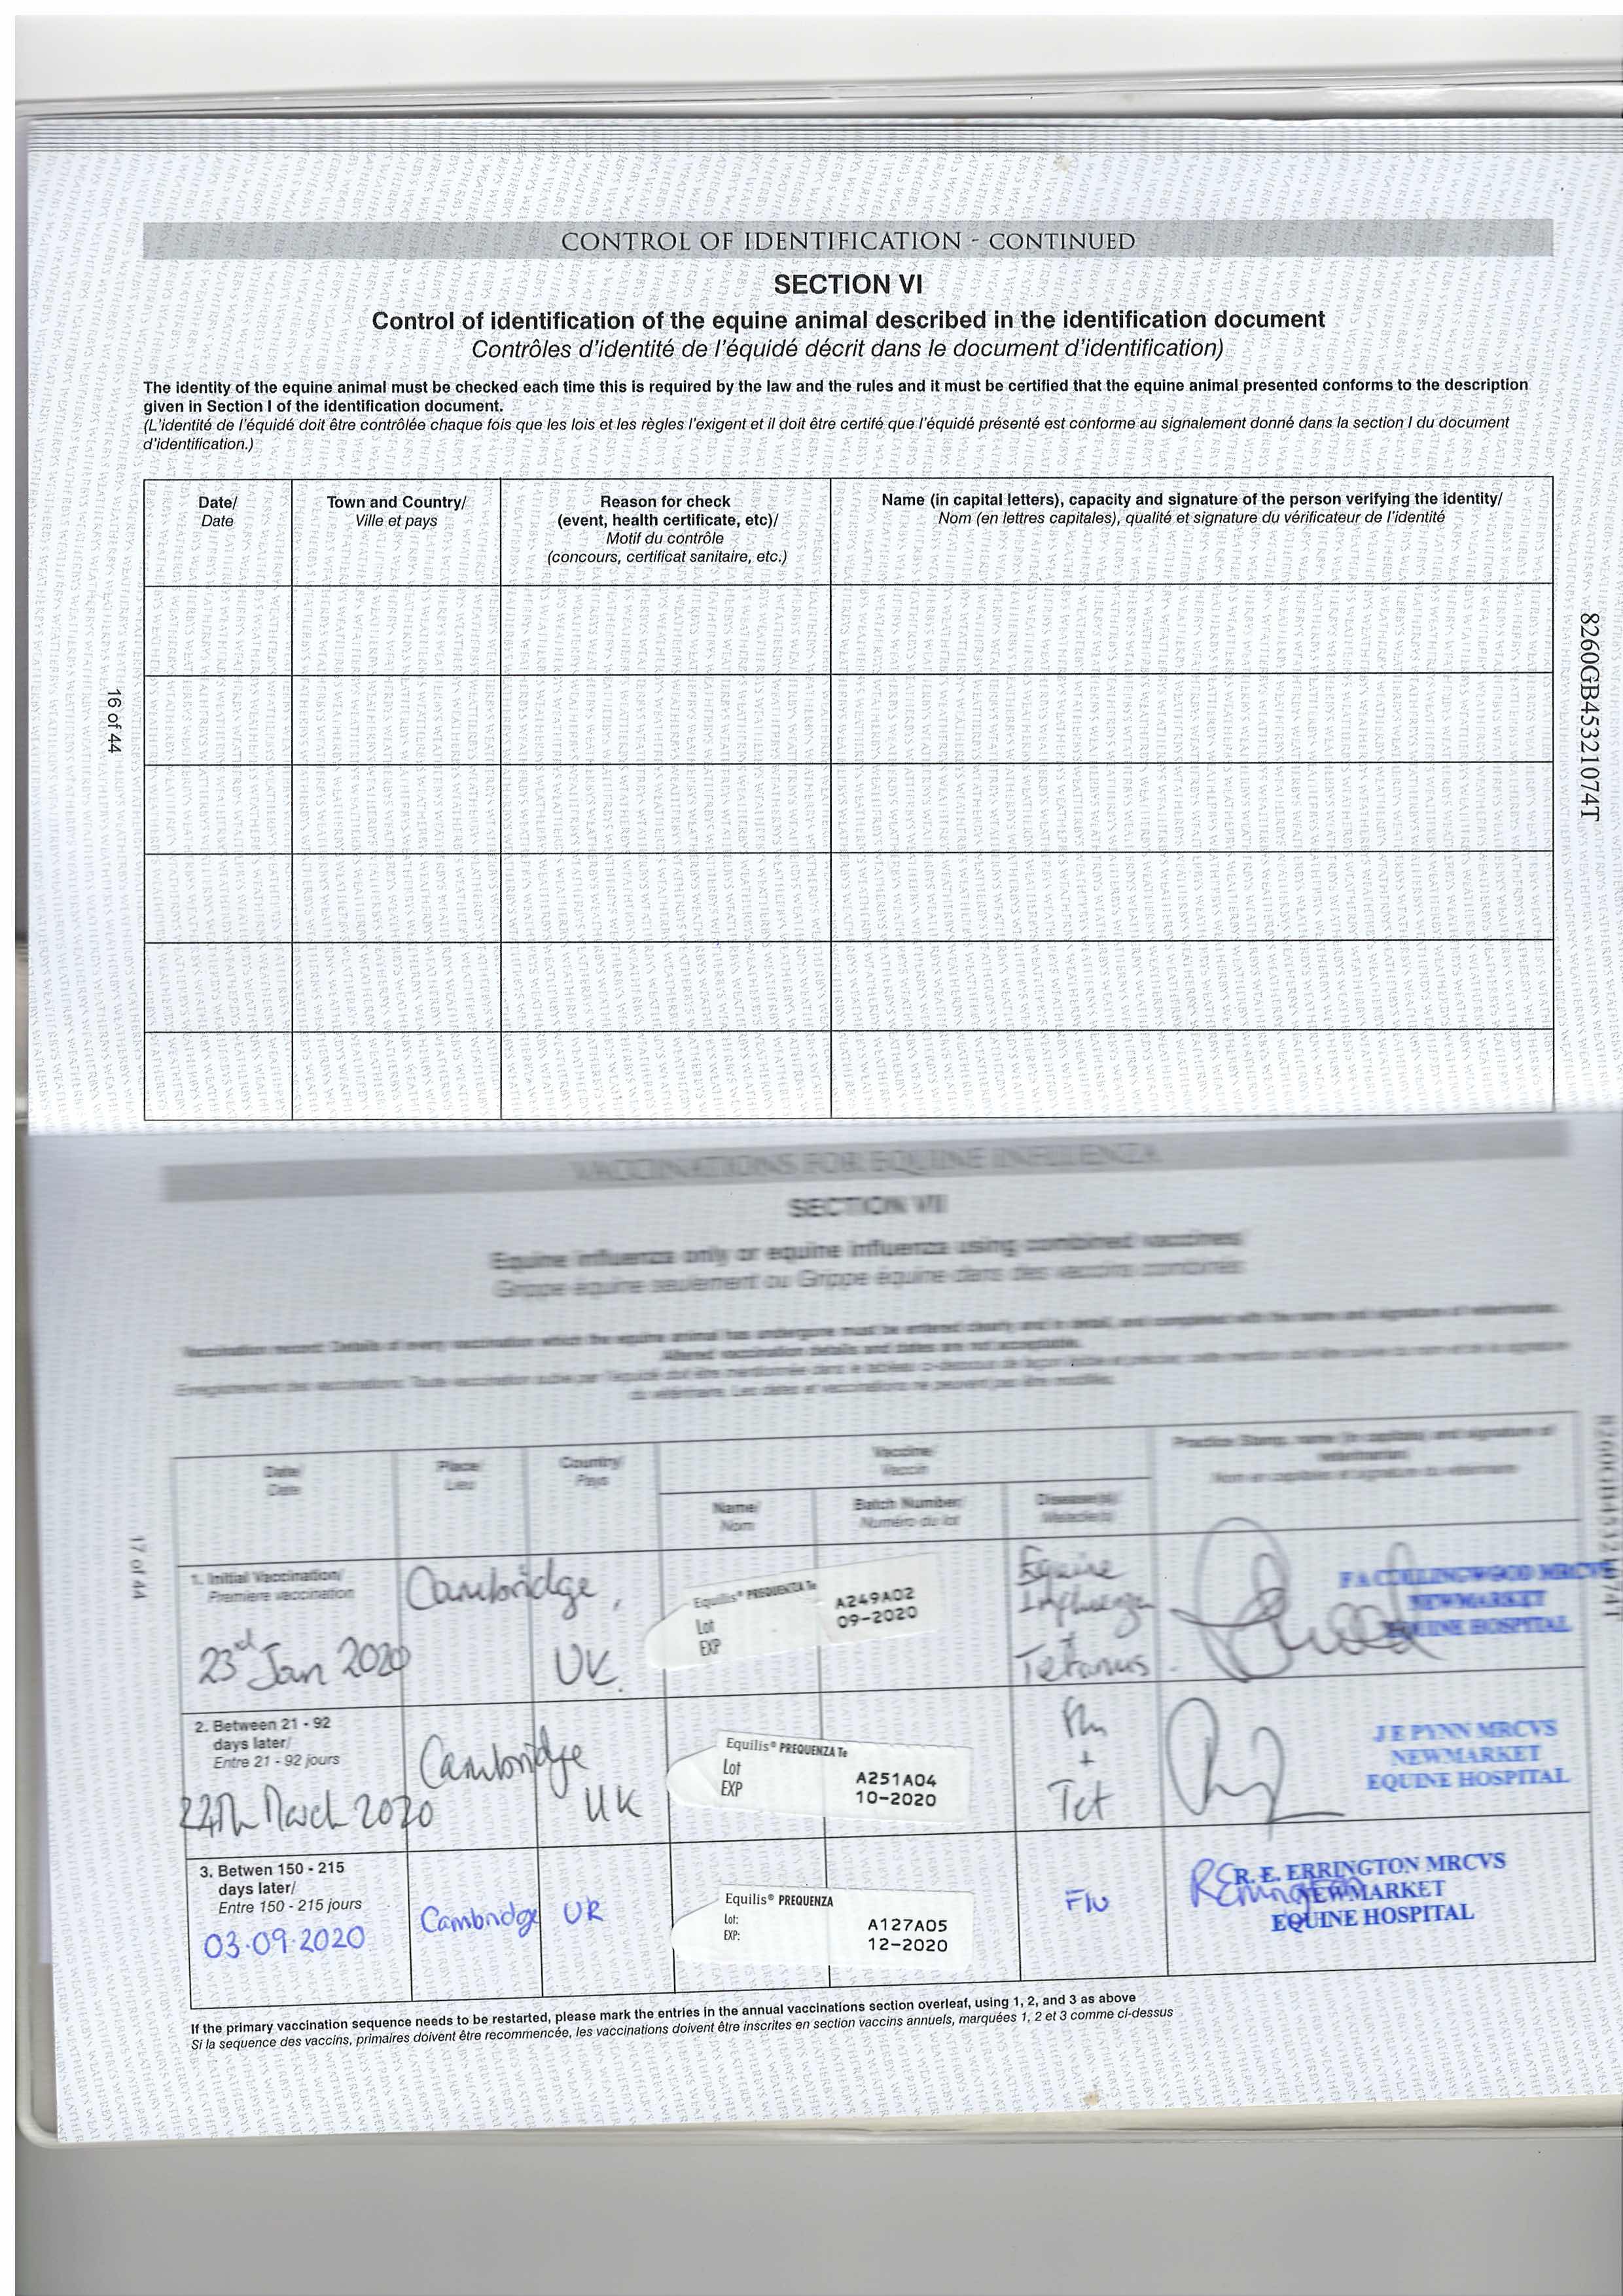 CONTROL OF IDENTIFICATION - CONTINUED
SECTION VI
Control of identification of the equine animal described in the identification document
Contrôles d'identité de l'équidé décrit dans le document d'identification)
The identity of the equine animal must be checked each time this is required by the law and the rules and it must be certified that the equine animal presented conforms to the description
given in Section I of the identification document.
(L'identité de l'équidé doit être contrôlée chaque fois que les lois et les règles l'exigent et il doit être certifé que l'équidé présenté est conforme au signalement donné dans la section I du document
d'identification.)
Date/
Date
Town and Country/
Ville et pays
Reason for check
(event, health certificate, etc)/
Motif du contrôle
(concours, certificat sanitaire, etc.)
Name (in capital letters), capacity and signature of the person verifying the identity/
Nom (en lettres capitales), qualité et signature du vérificateur de l'identité
16 of 44
8260GB45321074T
VACCINATIONS FOR EQUINE INFLUENZA
SECTION VII
Equine influenza only or equine influenza using combined vaccines
Grippe équine seulement ou Grippe équine dans des vaccins combinés
Vaccination record: Details of every vaccination which the equine animal has undergone must be entered clearly and in detail, and completed with the name and signature of veterinarian.
Altered vaccination details and dates are not acceptable.
Enregistrement des vaccinations: Toute vaccination subie par l'équidé doit être mentionnée dans le tableau ci-dessous de façon
du vétérinaire. Les dates et vaccinations ne peuvent pas être modifiés.
Date/
Date
Place/
Lieu
Country/
Pays
Vaccine/
Vaccin
Name/
Nom
Batch Number/
Numéro du lot
Disease(s)/
Maladie(s)
Practice Stamp, name (in capitals) and signature of
veterinarian
Nom en capitales et signature du vétérinaire
17 of 44
1. Initial Vaccination/
Première vaccination
23rd Jan 2020
Cambridge,
UK.
Equilis® PREQUENZA Te
Lot
EXP
A249A02
09-2020
Equine
Influenza
+
Tetanus
F A COLLINGWOOD MRCVS
NEWMARKET
EQUINE HOSPITAL
2. Between 21 - 92
days later/
Entre 21 - 92 jours
24th March 2020
Cambridge
UK
Equilis® PREQUENZA Te
Lot
EXP
A251A04
10-2020
Flu
+
Tet
J E PYNN MRCVS
NEWMARKET
EQUINE HOSPITAL
3. Betwen 150 - 215
days later/
Entre 150 - 215 jours
03.09.2020
Cambridge
UK
Equilis® PREQUENZA
Lot:
EXP:
A127A05
12-2020
Flu
R. E. ERRINGTON MRCVS
NEWMARKET
EQUINE HOSPITAL
If the primary vaccination sequence needs to be restarted, please mark the entries in the annual vaccinations section overleaf, using 1, 2, and 3 as above
Si la sequence des vaccins, primaires doivent être recommencée, les vaccinations doivent être inscrites en section vaccins annuels, marquées 1, 2 et 3 comme ci-dessus